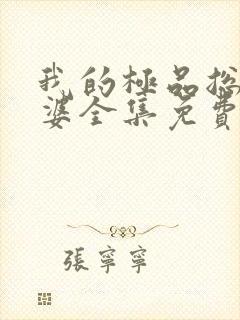 我的極品總
婆全集免費
張寧寧